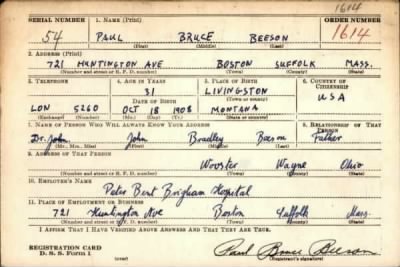 1614
SERIAL NUMBER 1. NAME (Print) ORDER NUMBER
54 PAUL BRUCE BEESON 1614
(First) (Middle) (Last)
2. ADDRESS (Print)
721 HUNTINGTON AVE BOSTON SUFFOLK MASS.
(Number and street or R. F. D. number) (Town) (County) (State)
3. TELEPHONE 4. AGE IN YEARS 5. PLACE OF BIRTH 6. COUNTRY OF CITIZENSHIP
31 LIVINGSTON USA
DATE OF BIRTH (Town or county)
LON 5260 OCT 18 1908 MONTANA
(Exchange) (Number) (Mo.) (Day) (Yr.) (State or country)
7. NAME OF PERSON WHO WILL ALWAYS KNOW YOUR ADDRESS 8. RELATIONSHIP OF THAT PERSON
Dr. John John Bradley Beeson Father
(Mr., Mrs., Miss) (First) (Middle) (Last)
9. ADDRESS OF THAT PERSON
Wooster Wayne Ohio
(Number and street or R. F. D. number) (Town) (County) (State)
10. EMPLOYER'S NAME
Peter Bent Brigham Hospital
11. PLACE OF EMPLOYMENT OR BUSINESS
721 Huntington Ave Boston Suffolk Mass.
(Number and street or R. F. D. number) (Town) (County) (State)
I AFFIRM THAT I HAVE VERIFIED ABOVE ANSWERS AND THAT THEY ARE TRUE.
REGISTRATION CARD
D. S. S. Form 1
Paul Bruce Beeson
(Registrant's signature)